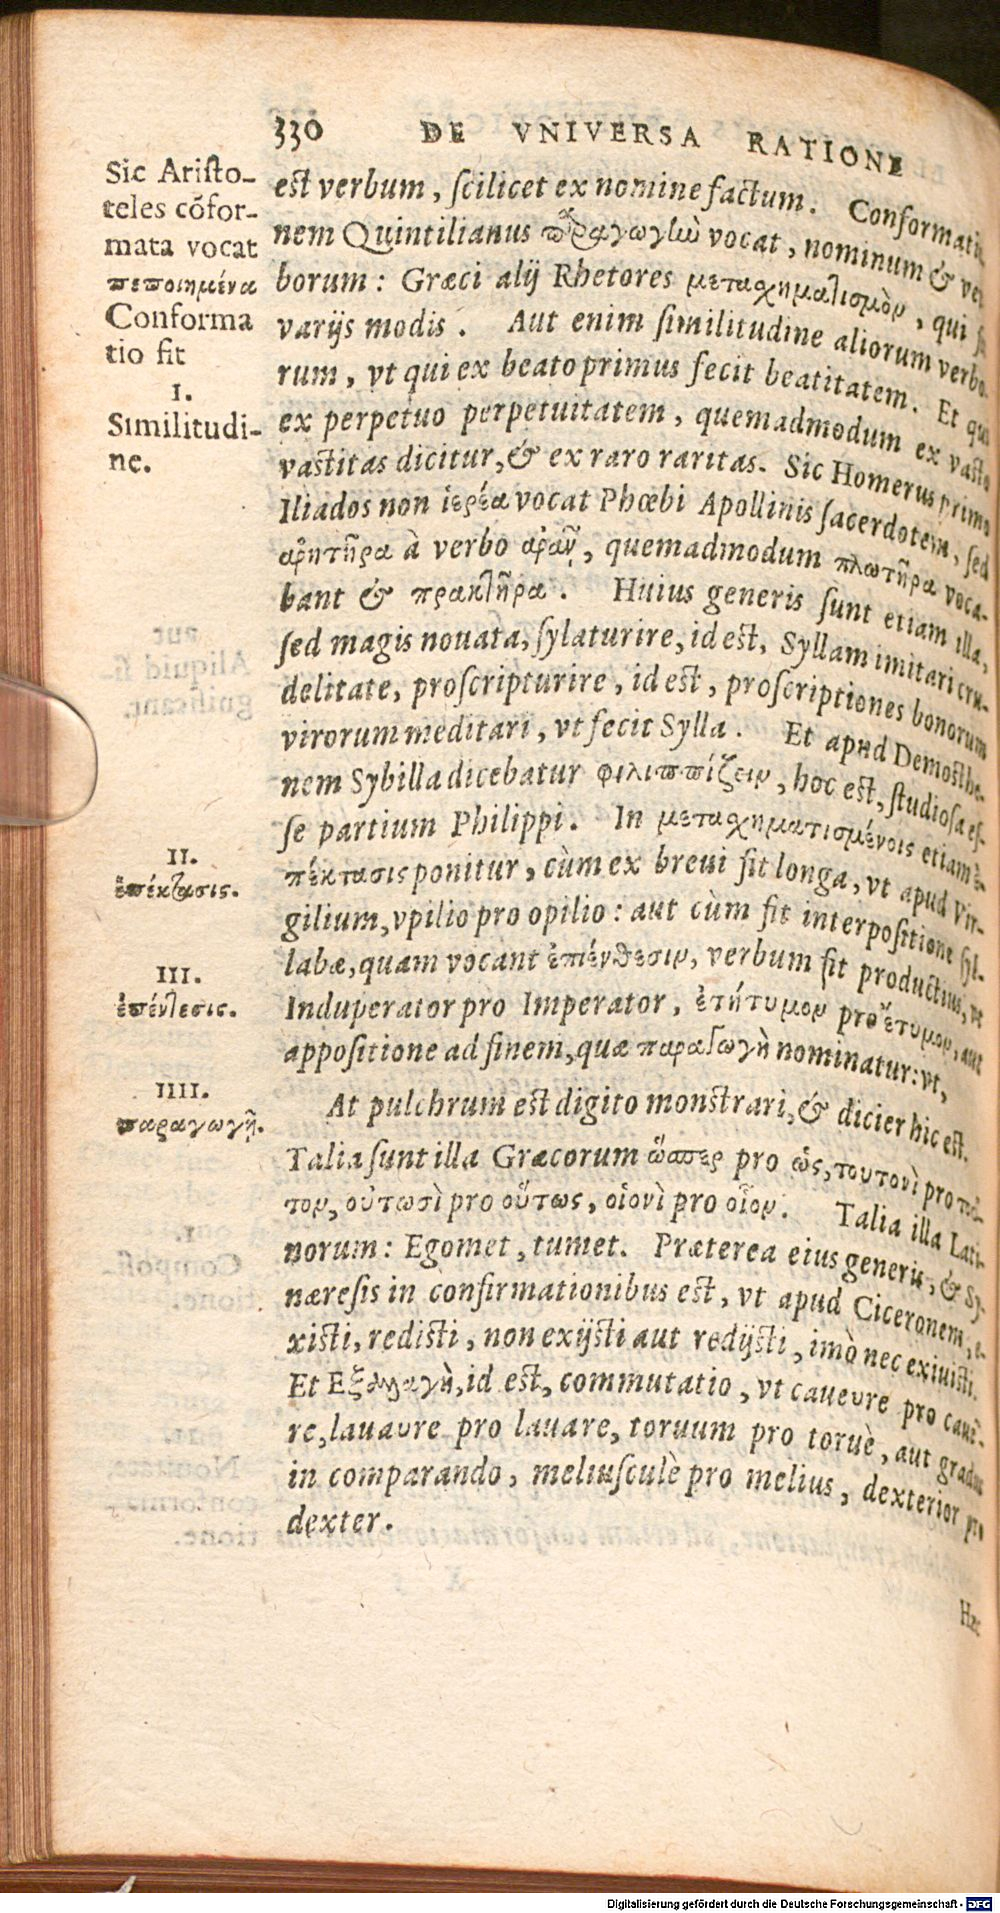 330 DE VNIVERSA RATIONE
est verbum, scilicet ex nomine factum. Conformatio
nem Quintilianus παραγωγὴν vocat, nominum & ver
borum: Græci alij Rhetores μεταχηματισμὸν, qui fit
varijs modis. Aut enim similitudine aliorum verbo-
rum, vt qui ex beato primus fecit beatitatem. Et qui
ex perpetuo perpetuitatem, quemadmodum ex vasto
vastitas dicitur, & ex raro raritas. Sic Homerus primo
Iliados non ἱερέα vocat Phœbi Apollinis sacerdotem, sed
ἀρητῆρα à verbo ἀρᾶν, quemadmodum πλωτῆρα voca-
bant & πρακτῆρα. Huius generis sunt etiam illa,
sed magis nouata, sylaturire, id est, Syllam imitari cru-
delitate, proscripturire, id est, proscriptiones bonorum
virorum meditari, vt fecit Sylla. Et apud Demosthe-
nem Sybilla dicebatur φιλιππίζειν, hoc est, studiosa es-
se partium Philippi. In μεταχηματισμένοις etiam ἐ-
πέκτασις ponitur, cùm ex breui fit longa, vt apud Vir-
gilium, vpilio pro opilio: aut cùm fit interpositione syl-
labæ, quam vocant ἐπένθεσιν, verbum fit productius, vt
Induperator pro Imperator, ἐτήτυμον pro ἔτυμον, aut
appositione ad finem, quæ παραγωγὴ nominatur: vt,
At pulchrum est digito monstrari, & dicier hic est.
Talia sunt illa Græcorum ὥσπερ pro ὡς, τουτονὶ pro τοῦ-
τον, οὑτωσὶ pro οὕτως, οἱονὶ pro οἷον. Talia illa Lati-
norum: Egomet, tumet. Præterea eius generis, & Sy-
næresis in confirmationibus est, vt apud Ciceronem, e-
xisti, redisti, non exijsti aut redijsti, imò nec exiuisti.
Et Ἐξαλλαγὴ, id est, commutatio, vt cauere pro cauē-
re, lauare pro lauare, toruum pro toruè, aut gradus
in comparando, meliusculè pro melius, dexterior pro
dexter.
Hæc
Sic Aristo-
teles cõfor-
mata vocat
πεποιημένα
Conforma
tio fit
I.
Similitudi-
ne.
II.
ἐπέκτασις.
III.
ἐπένθεσις.
IIII.
παραγωγῆ.
Digitalisierung gefördert durch die Deutsche Forschungsgemeinschaft - DFG